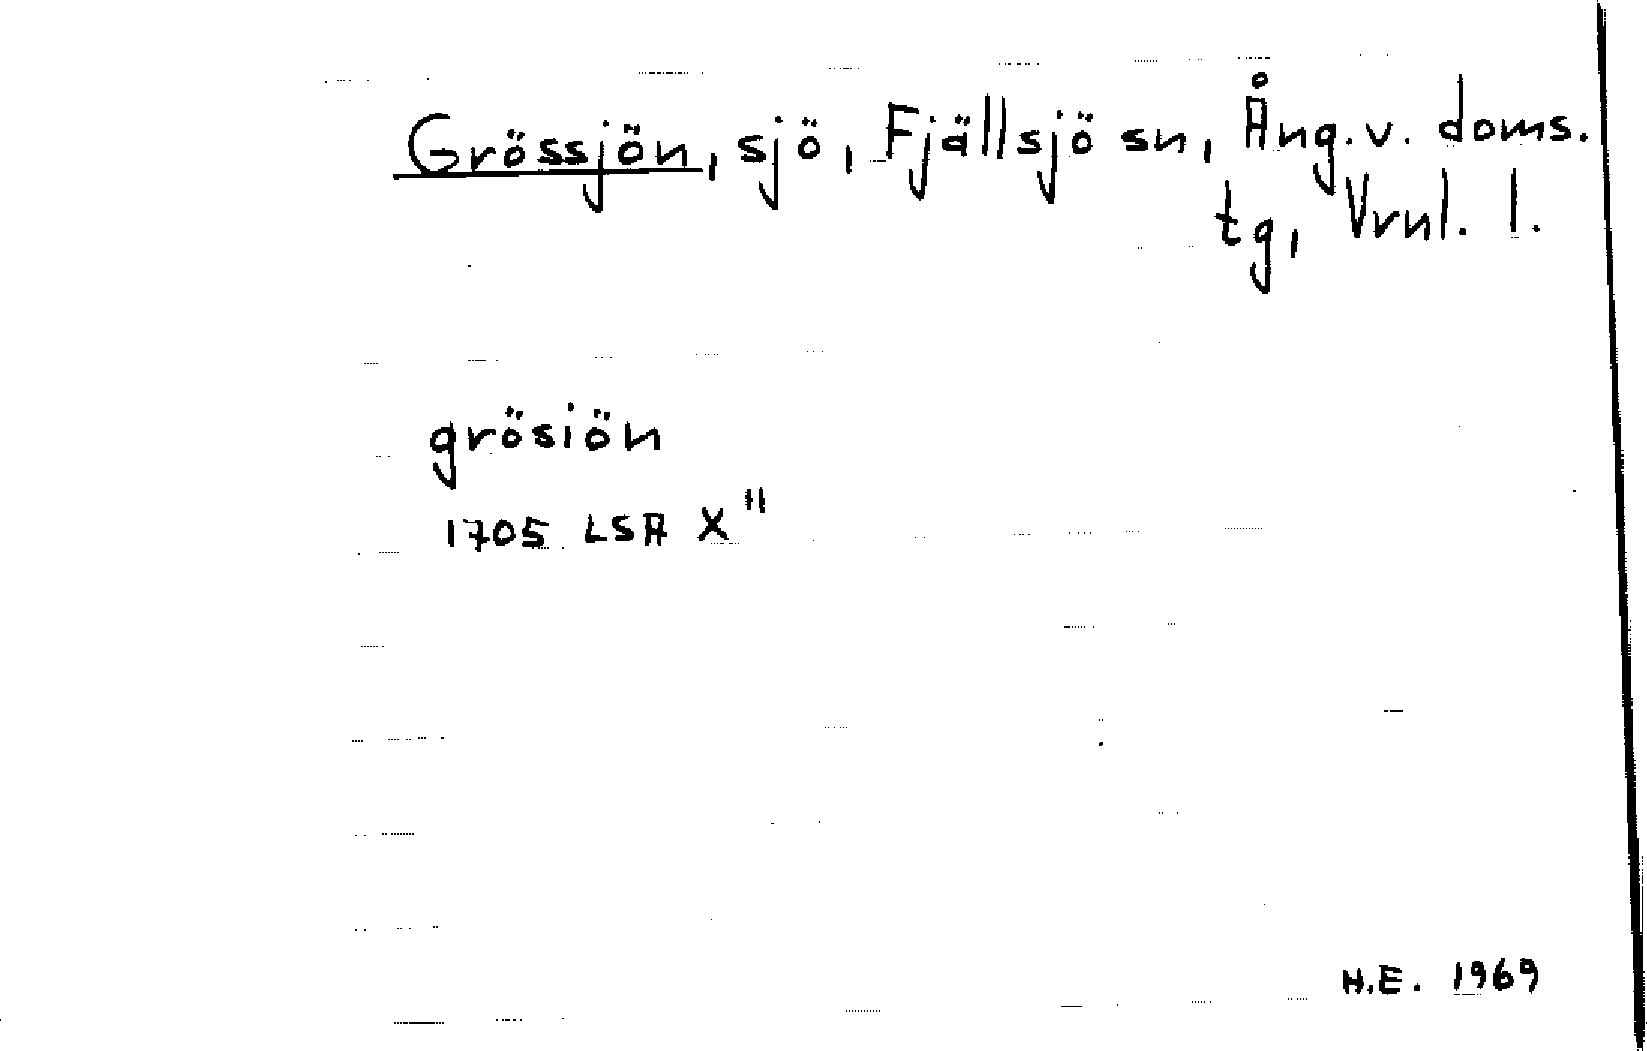 Grössjön, sjö, Fjällsjö sn, Ång. v. doms.
tg, Vrnl. l.
grösiön
1705 LSA X"
H.E. 1969